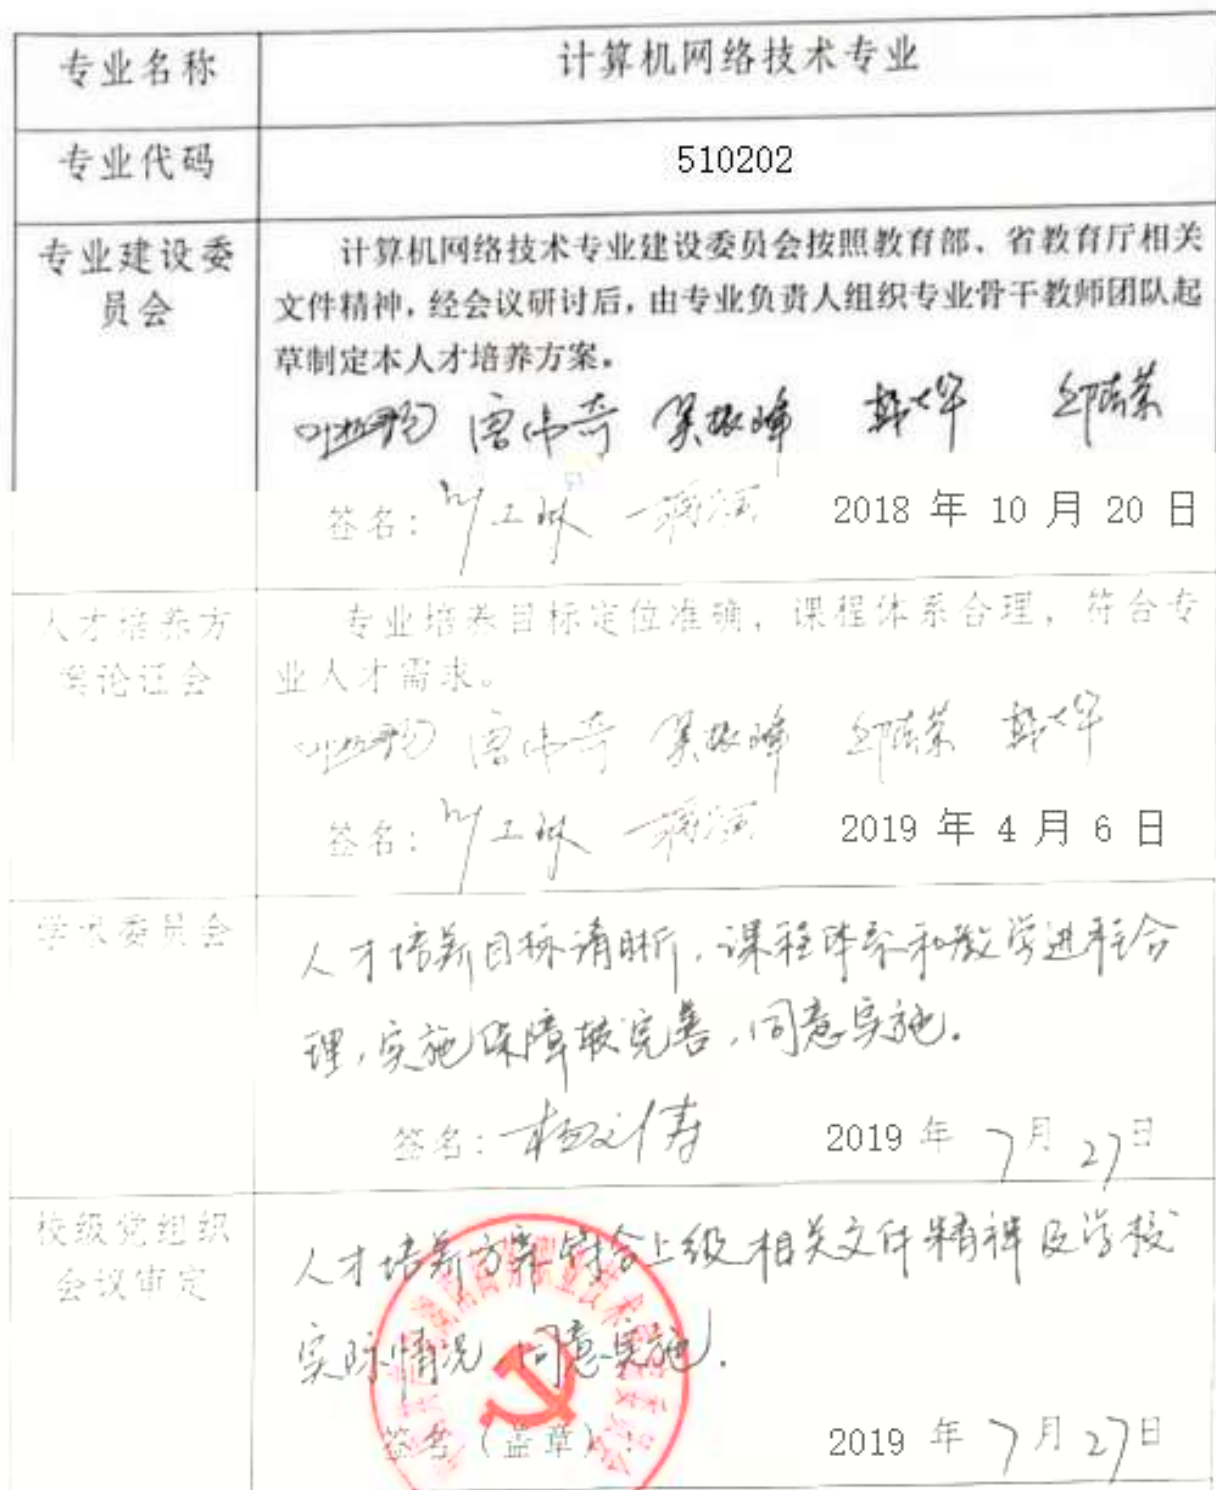 专业名称
计算机网络技术专业
专业代码
510202
专业建设委
员会
计算机网络技术专业建设委员会按照教育部、省教育厅相关
文件精神,经会议研讨后,由专业负责人组织专业骨干教师团队起
草制定本人才培养方案。
唐伟奇 吴振峰
签名: 2018 年 10 月 20 日
人才培养方
案论证会
专业培养目标定位准确,课程体系合理,符合专
业人才需求。
唐伟奇 吴振峰
签名: 2019 年 4 月 6 日
学术委员会
人才培养目标清晰,课程体系和教学进程合
理,实施保障较完善,同意实施.
签名: 2019 年 7 月 27 日
校级党组织
会议审定
人才培养方案符合上级相关文件精神及学校
实际情况,同意实施.
签名(盖章): 2019 年 7 月 27 日